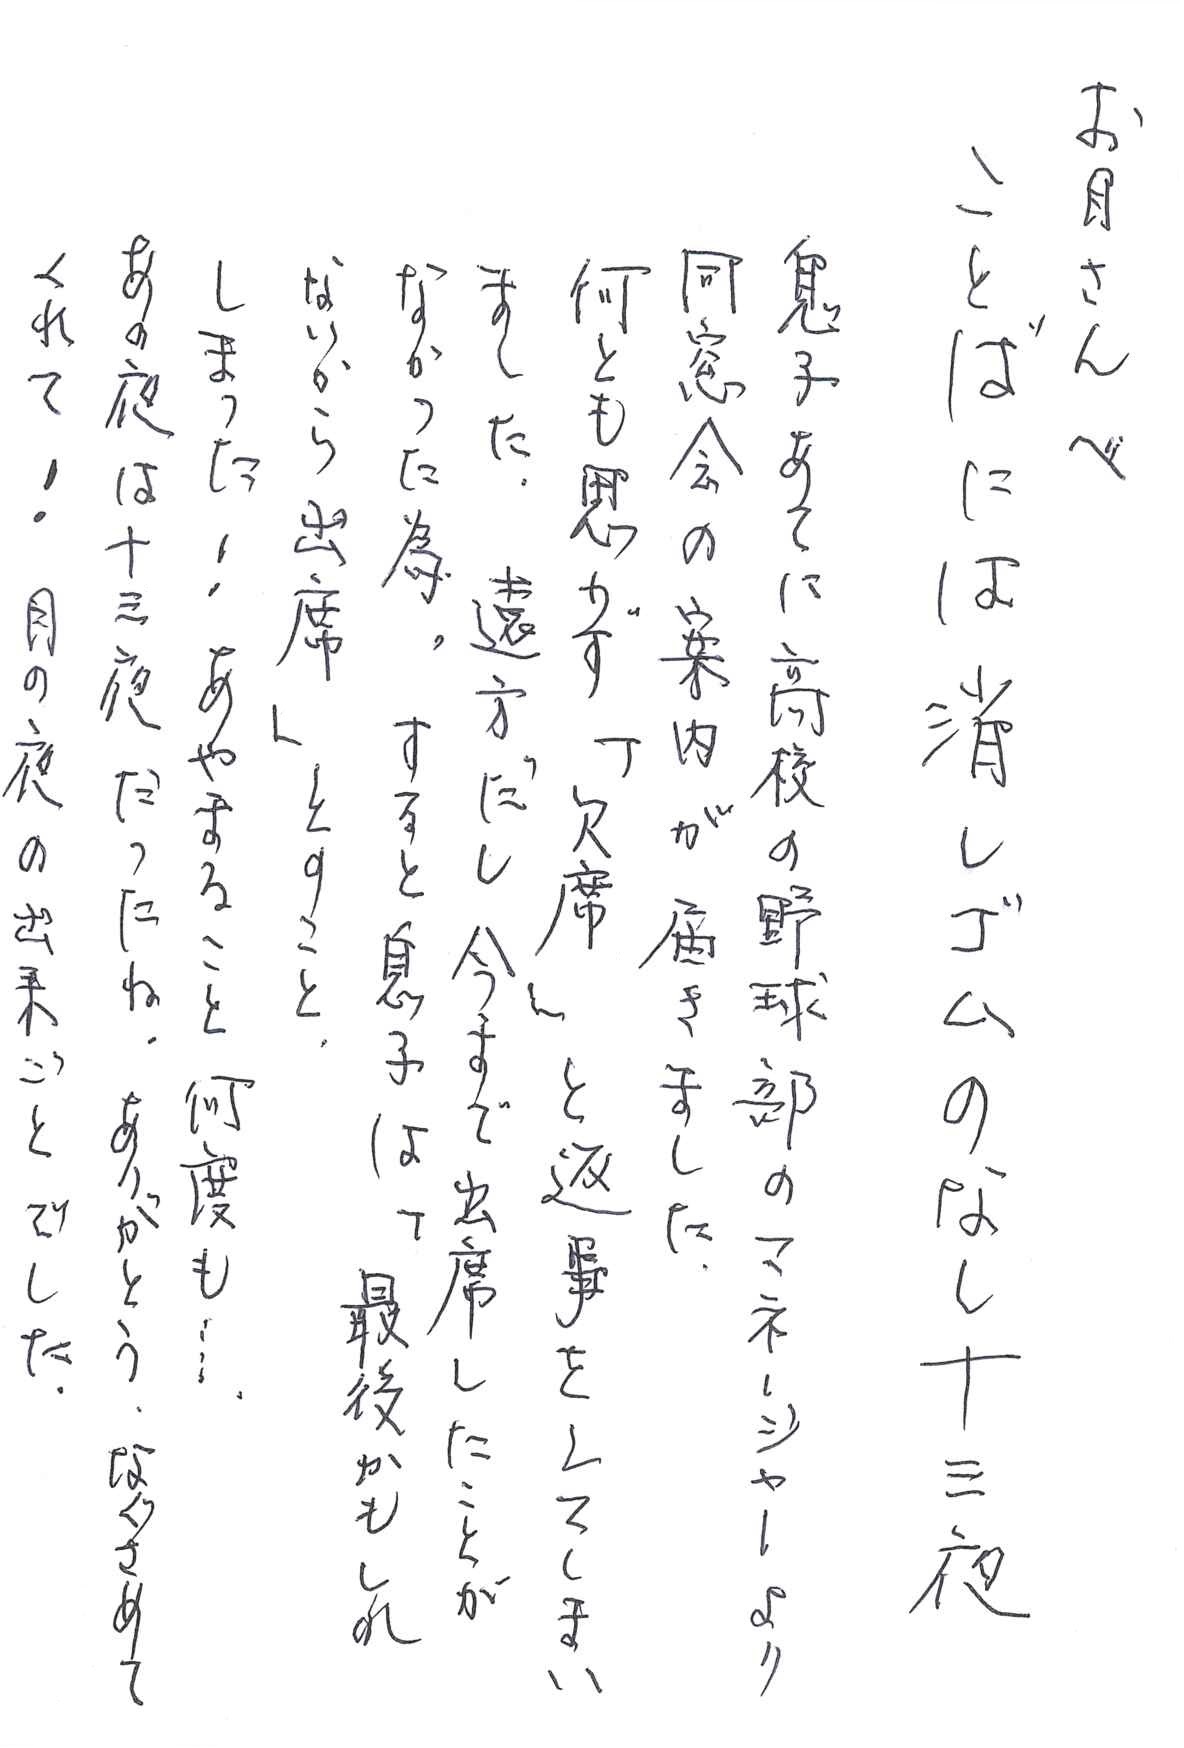 お月さんへ
ことばには消しゴムのなし十三夜
息子あてに高校の野球部のマネージャーより
同窓会の案内が届きました。
何とも思わず「欠席」と返事をしてしまい
ました。遠方だし今まで出席したことが
なかった為。すると息子は「最後かもしれ
ないから出席」とのこと。
しまった！あやまること何度も…。
あの夜は十三夜だったね。ありがとう、なぐさめて
くれて！月の夜の出来ごとでした。